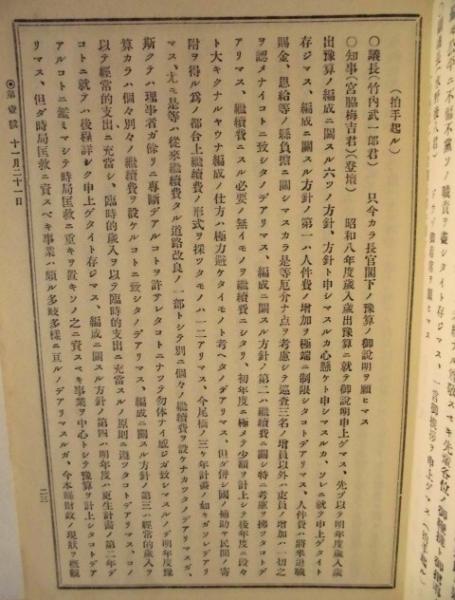 (拍手起ル)
○議長(竹內武一郞君) 只今カラ長官閣下ノ豫算ノ御説明ヲ願ヒマス
○知事(宮脇梅吉君)(登壇) 昭和八年度歲入歲出豫算ニ就テ御說明申上ゲマス、先ヅ以テ明年度歲入歲
出豫算ノ編成ニ關スル六ツノ方針、方針ト申シマスルカ心懸ケト申シマスルカ、ソレニ就テ申上ゲタイト
存ジマス、編成ニ關スル方針ノ第一ハ人件費ノ增加ヲ極端ニ制限シタコトデアリマス、人件費ハ將來退職
賜金、恩給等ノ縣負擔ニ關シマスカラ是等厄介ナ点ヲ考慮シテ巡査三名ノ增員以外ハ吏員ノ增加ハ一切之
ヲ認メナイコトニ致シタノデアリマス、編成ニ關スル方針ノ第二ハ繼續費ニ關シ特ニ考慮ヲ拂ツタコトデ
アリマス、繼續費ニスル必要ノ無イモノヲ繼續費ニシタリ、初年度ニ極メテ少額ヲ計上シテ後年度ニ段々
ト大キクナルヤウナ編成ノ仕方ハ極力避ケタイモノト考ヘタノデアリマス、但ダ併シ國ノ補助ヤ民間ノ寄
附ヲ得ル爲メノ都合上繼續費ノ形式ヲ採ツタモノハ一二アリマス、今尾橋ノ三ケ年計畫ノ如キガソレデアリ
マス、尤モ是等ハ從來繼續費タル道路改良ノ一部トシテ別ニ個々ノ繼續費ヲ設ケナカツタノデアリマスガ
斯クテハ理事者ガ餘リニ專斷デアルコトヲ許アレタコトニナツテ勿体ナイ感ジガ致シマスルノデ明年度豫
算カラハ個々別々ノ繼續費ヲ設ケルコトニ致シタノデアリマス、編成ニ關スル方針ノ第三ハ經常的歲入ヲ
以テ經常的支出ニ充當シ、臨時的歲入ヲ以テ臨時的支出ニ充當スルノ原則ニ遵ツタコトデアリマス、コノ
コトニ就テハ後程詳シク申上ゲタイト存ジマス、編成ニ關スル方針ノ第四ハ明年度ハ更生計畫ノ第二年デ
アルコトニ鑑ミマシテ時局匡救ニ重キヲ置キソノ之ニ資スベキ事業ヲ中心トシテ豫算ヲ計上シタコトデア
リマス、但ダ時局匡救ニ資スベキ事業ハ頗ル多岐多樣ニ亘ルノデアリマスルガ、今本縣財政ノ現狀ヲ概觀
第壹號 十一月二十一日
二三